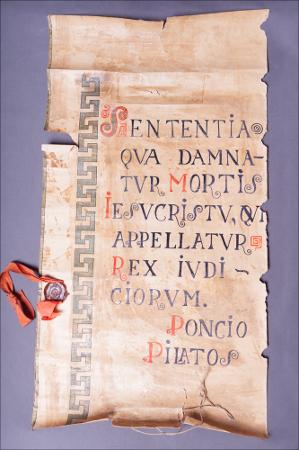 SENTENTIA
QVA DAMNA-
TVR MORTIS
IESUCRISTV, QVI
APPELLATVR
REX IVDI-
CIORVM.
PONCIO
PILATOS